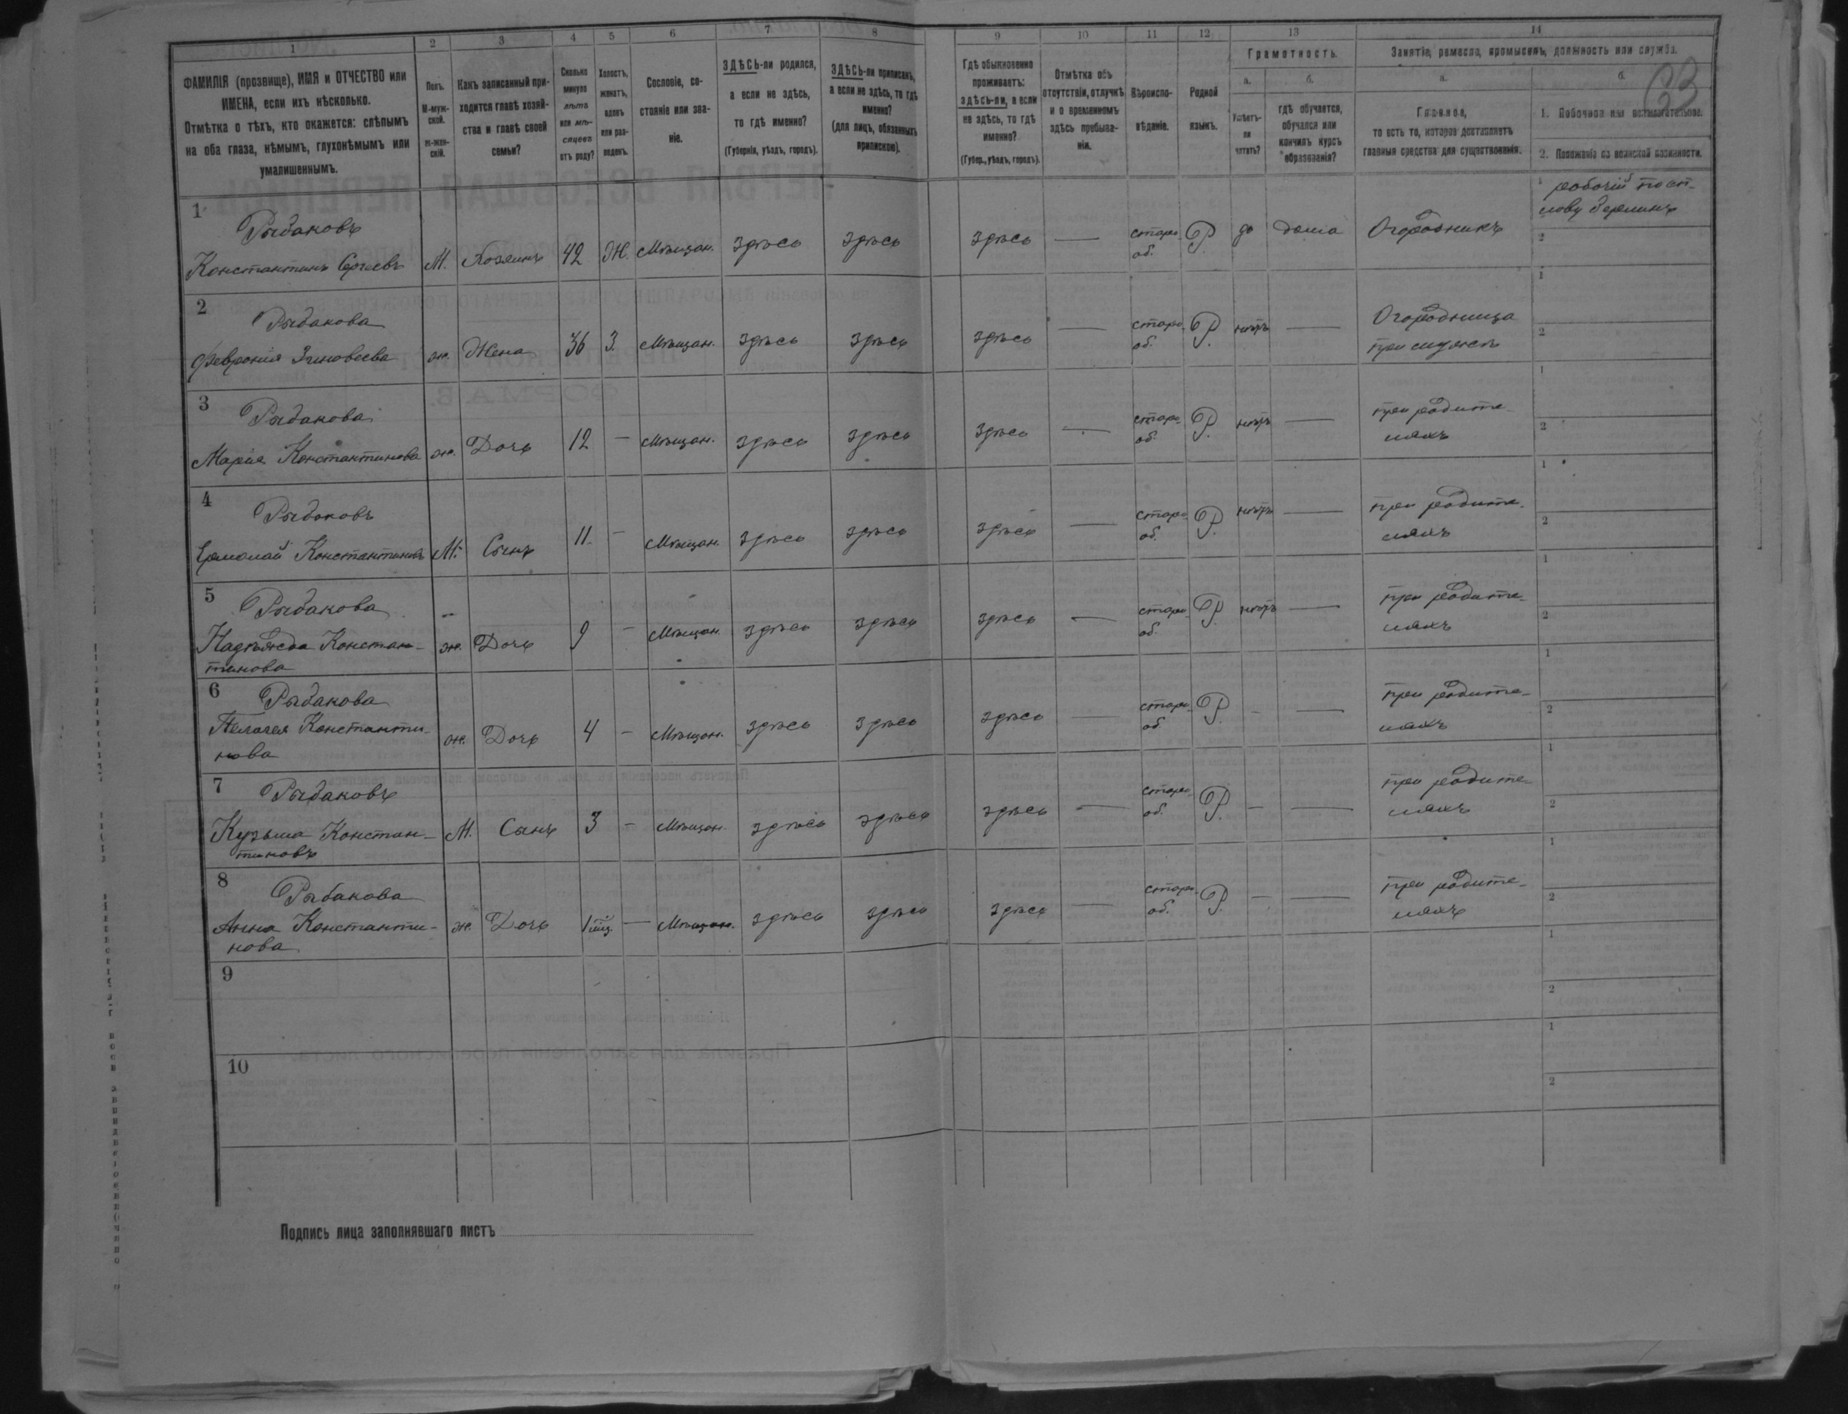 1 2 3 4 5 6 7 8 9 10 11 12 13 14
63
ФАМИЛІЯ (прозвище), ИМЯ и ОТЧЕСТВО или
ИМЕНА, если ихъ нѣсколько.
Отмѣтка о тѣхъ, кто окажется: слѣпымъ
на оба глаза, нѣмымъ, глухонѣмымъ или
умалишеннымъ.
Полъ.
М-муж-
ской.
ж-жен-
скій.
Какъ записанный при-
ходится главѣ хозяй-
ства и главѣ своей
семьи?
Сколько
минуло
лѣтъ
или мѣ-
сяцевъ
отъ роду?
Холостъ,
женатъ,
вдовъ
или раз-
веденъ.
Сословіе, со-
стояніе или зва-
ніе.
ЗДѢСЬ-ли родился,
а если не здѣсь,
то гдѣ именно?
(Губернія, уѣздъ, городъ).
ЗДѢСЬ-ли приписанъ,
а если не здѣсь, то гдѣ
именно?
(для лицъ, обязанныхъ
припискою).
Гдѣ обыкновенно
проживаетъ:
здѣсь-ли, а если
не здѣсь, то гдѣ
именно?
(Губер., уѣздъ, городъ).
Отмѣтка объ
отсутствіи, отлучкѣ
и о временномъ
здѣсь пребыва-
ніи.
Вѣроиспо-
вѣданіе.
Родной
языкъ.
Грамотность.
а.
Умѣетъ-
ли
читать?
б.
гдѣ обучается,
обучался или
кончилъ курсъ
образованія?
Занятіе, ремесло, промыселъ, должность или служба.
а.
Главное,
то есть то, которое доставляетъ
главныя средства для существованія.
б.
1. Побочное или вспомогательное.
2. Положеніе по воинской повинности.
1 Рыбаковъ
Константинъ Сергѣевъ М. Хозяинъ 42 Ж. Мѣщан. здѣсь здѣсь здѣсь — старо-об. Р. да дома Огородникъ
1 рабочій
2
2 Рыбакова
Февронія Зиновеева ж. Жена 36 З. Мѣщан. здѣсь здѣсь здѣсь — старо-об. Р. нѣтъ — Огородница
при мужѣ
1
2
3 Рыбакова
Марія Константинова ж. Дочь 12 — Мѣщан. здѣсь здѣсь здѣсь — старо-об. Р. нѣтъ — при родите-
ляхъ
1
2
4 Рыбаковъ
Ермолай Константиновъ М. Сынъ 11 — Мѣщан. здѣсь здѣсь здѣсь — старо-об. Р. нѣтъ — при родите-
ляхъ
1
2
5 Рыбакова
Надѣжда Констан-
тинова ж. Дочь 9 — Мѣщан. здѣсь здѣсь здѣсь — старо-об. Р. нѣтъ — при родите-
ляхъ
1
2
6 Рыбакова
Пелагея Константи-
нова ж. Дочь 4 — Мѣщан. здѣсь здѣсь здѣсь — старо-об. Р. — — при родите-
ляхъ
1
2
7 Рыбаковъ
Кузьма Констан-
тиновъ М. Сынъ 3 — Мѣщан. здѣсь здѣсь здѣсь — старо-об. Р. — — при родите-
ляхъ
1
2
8 Рыбакова
Анна Константи-
нова ж. Дочь 1 мѣц. — Мѣщан. здѣсь здѣсь здѣсь — старо-об. Р. — — при родите-
ляхъ
1
2
9
1
2
10
1
2
Подпись лица заполнявшаго листъ